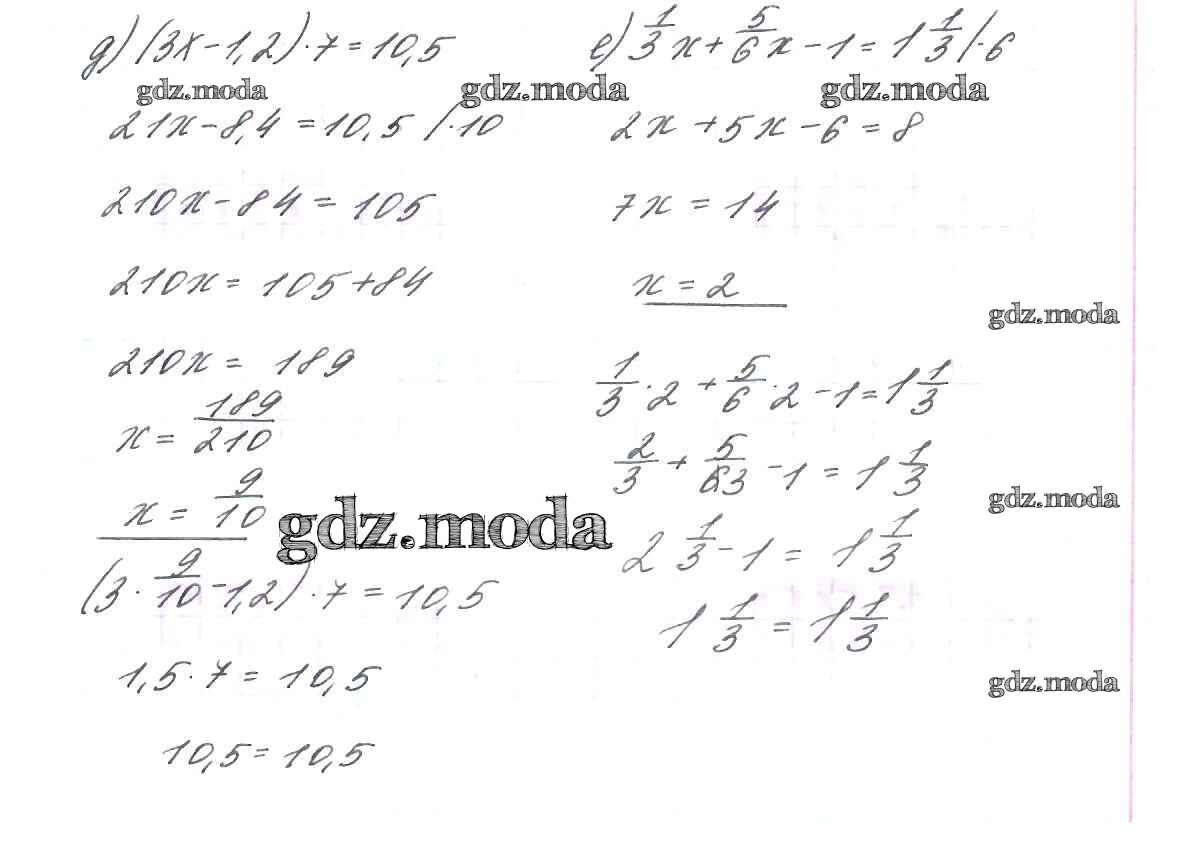 д) (3x - 1,2) · 7 = 10,5
gdz.moda
21x - 8,4 = 10,5 /·10
210x - 84 = 105
210x = 105 + 84
210x = 189
x = 189/210
x = 9/10
gdz.moda
(3 · 9/10 - 1,2) · 7 = 10,5
1,5 · 7 = 10,5
10,5 = 10,5
е) 1/3 x + 5/6 x - 1 = 1 1/3 /·6
gdz.moda gdz.moda
2x + 5x - 6 = 8
7x = 14
x = 2
gdz.moda
1/3 · 2 + 5/6 · 2 - 1 = 1 1/3
2/3 + 5/3 - 1 = 1 1/3
gdz.moda
2 1/3 - 1 = 1 1/3
1 1/3 = 1 1/3
gdz.moda